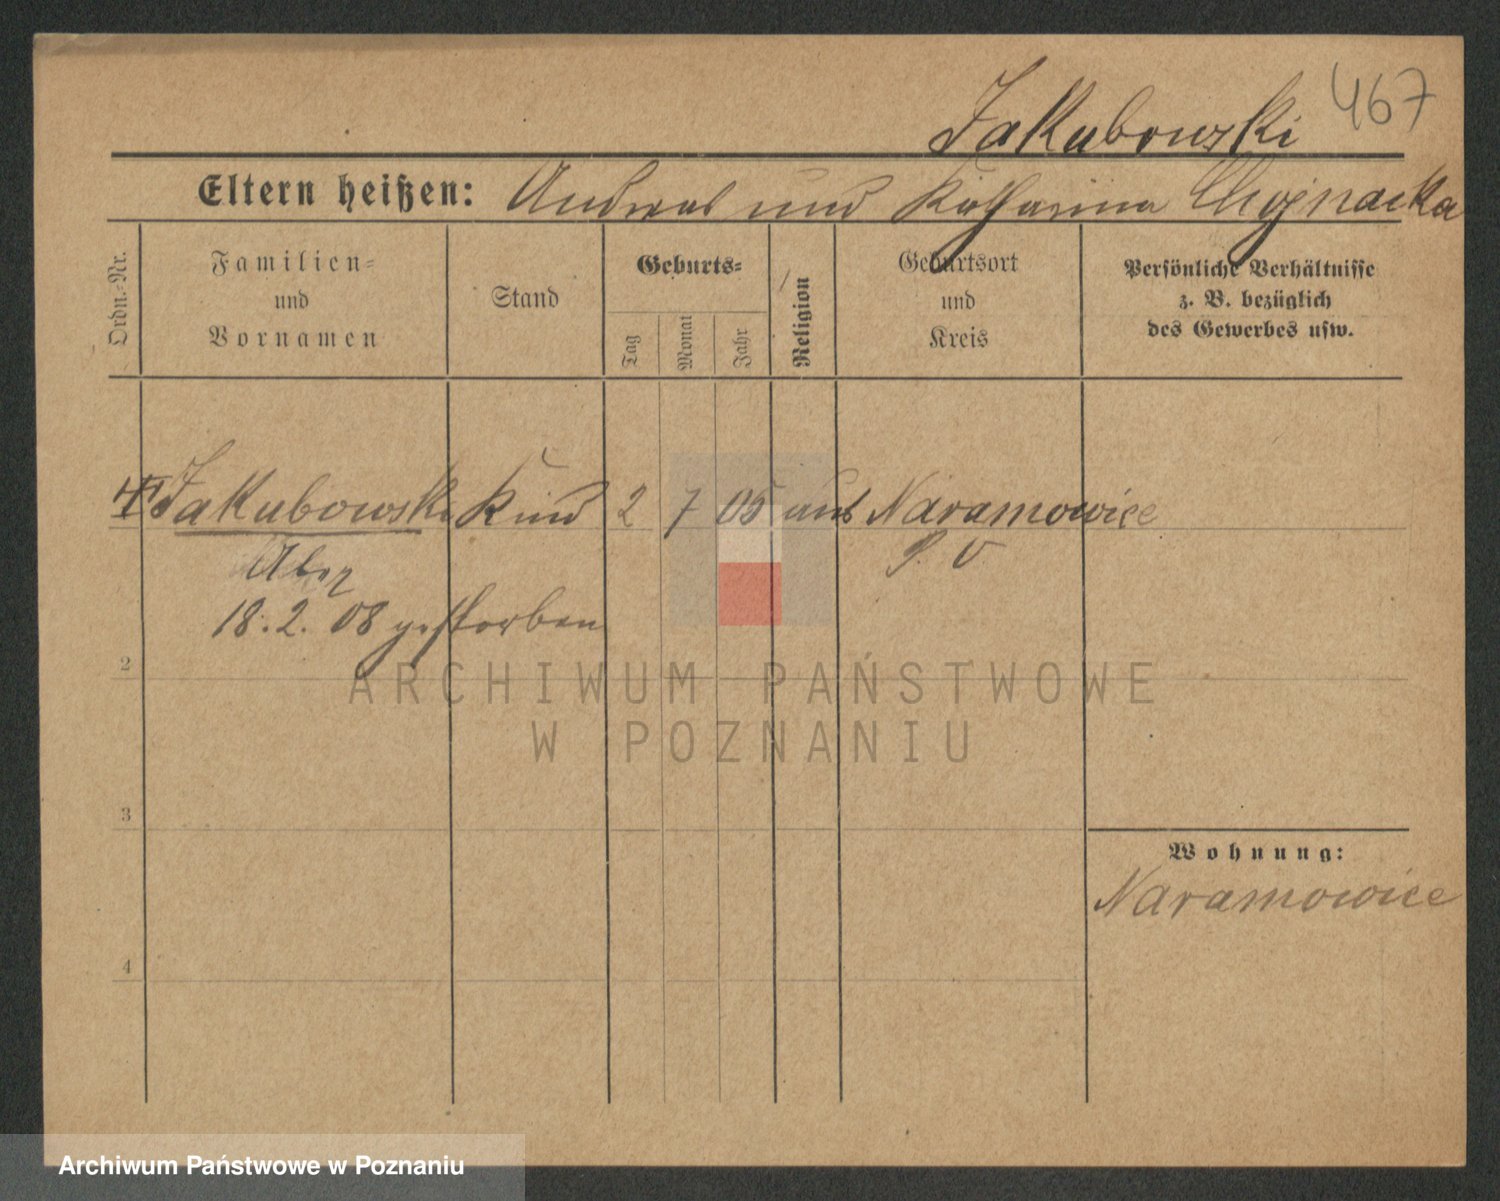 467
Jakubowski
Eltern heißen: Andreas und Katharina Chojnacka
Ordn.-Nr.
Familien-
und
Vornamen
Stand
Geburts-
Tag
Monat
Jahr
Religion
Geburtsort
und
Kreis
Persönliche Verhältnisse
z. B. bezüglich
des Gewerbes usw.
Jakubowski Kind 2 7 05 Naramowice
P. O.
18.2.08 gestorben
2
3
4
Wohnung:
Naramowice
ARCHIWUM PAŃSTWOWE
W POZNANIU
Archiwum Państwowe w Poznaniu